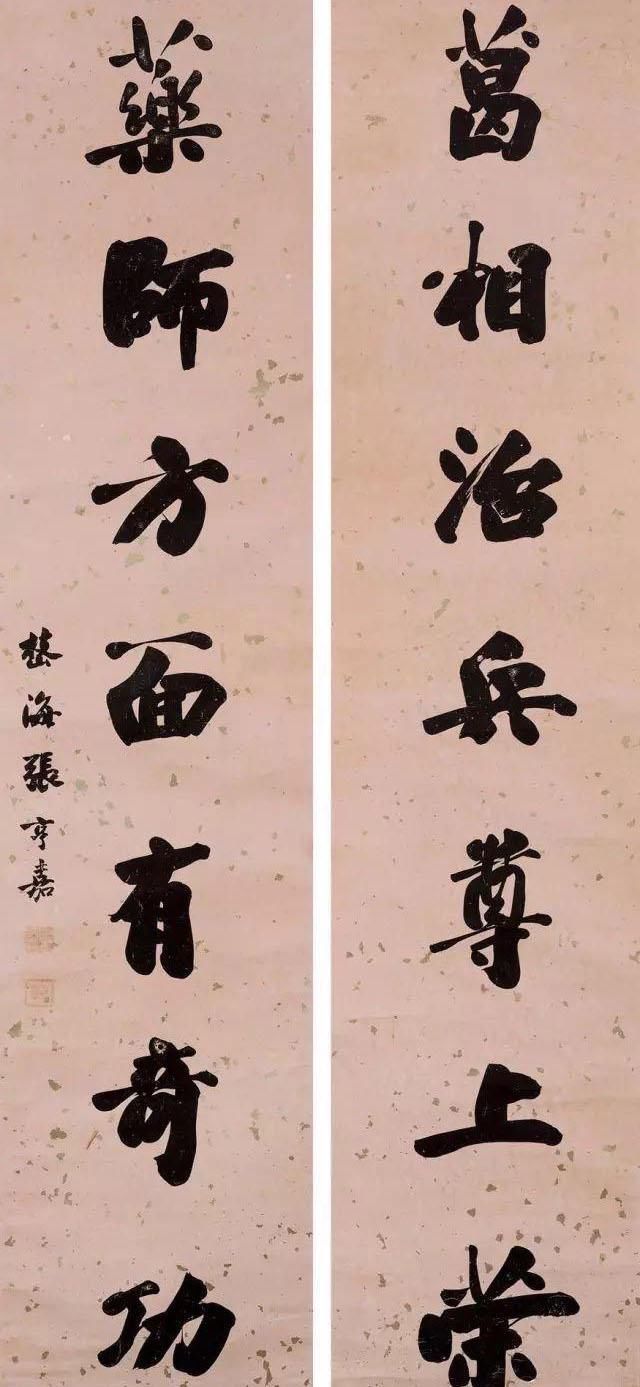 葛相治兵尊上策
藥師方面有奇功
海張亨嘉